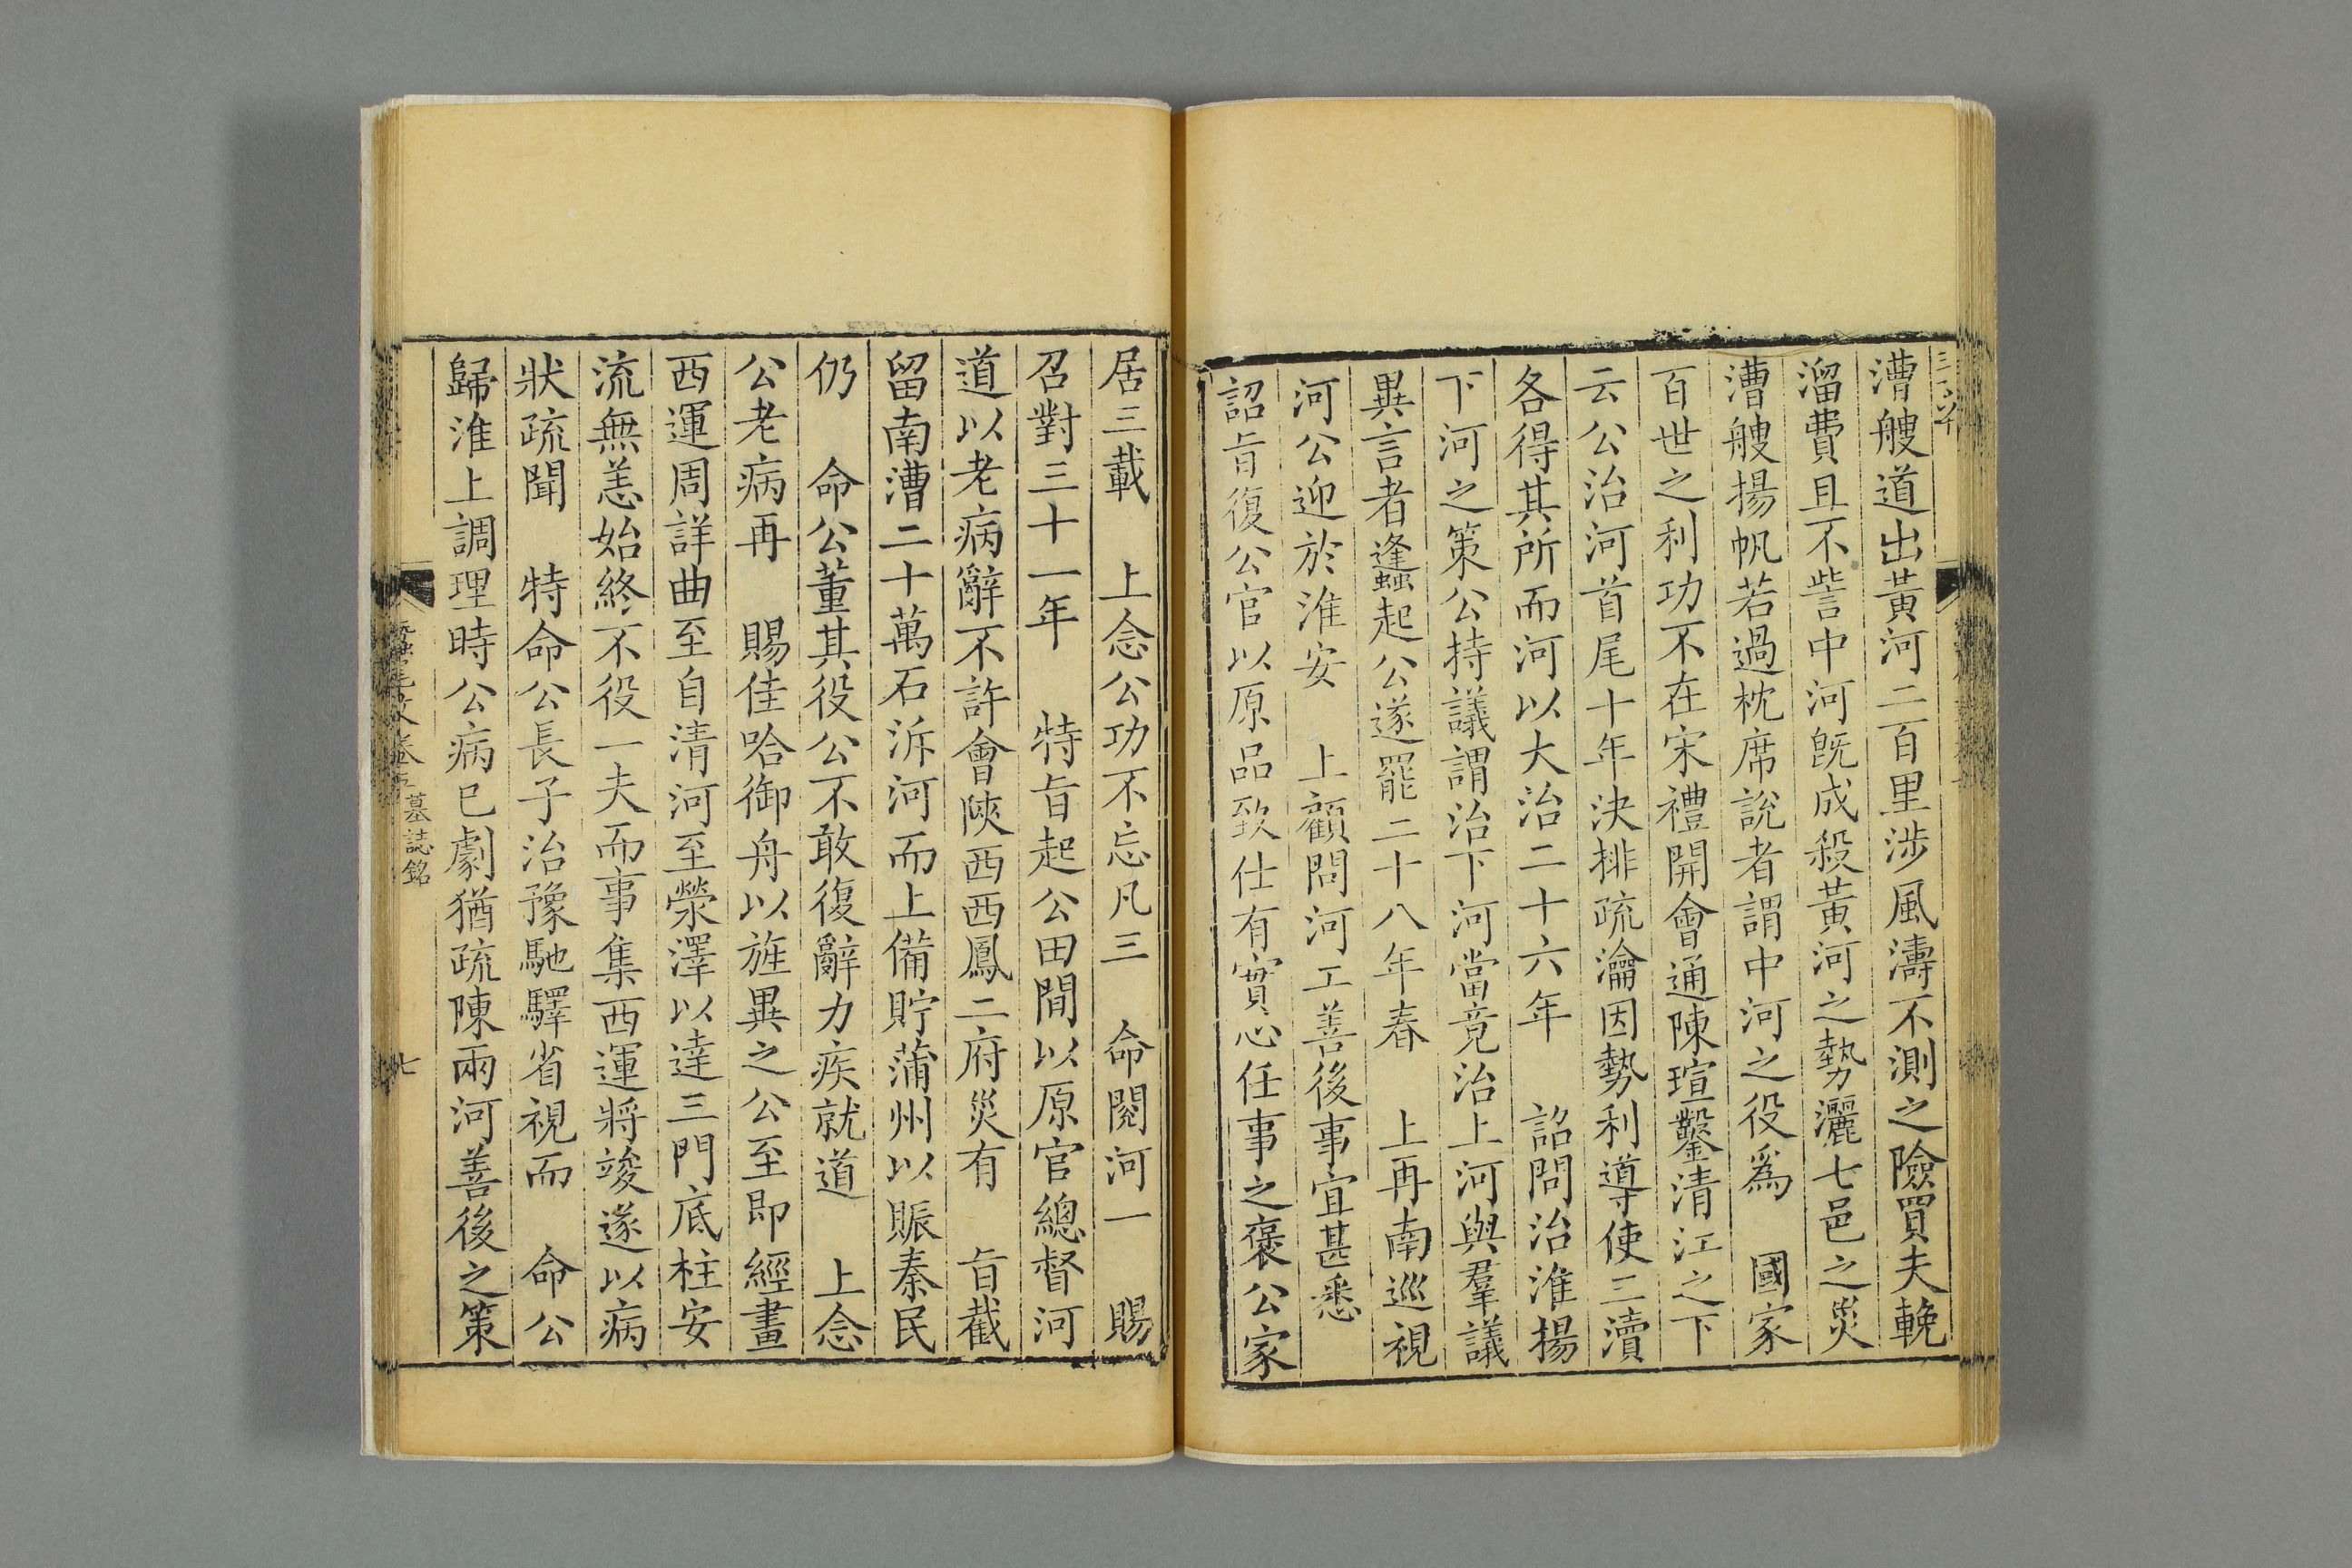 漕艘道出黃河二百里涉風濤不測之險買夫輓
溜費且不訾中河既成殺黃河之勢灑七邑之災
漕艘揚帆若過枕席說者謂中河之役爲　國家
百世之利功不在宋禮開會通陳瑄鑿清江之下
云公治河首尾十年決排疏瀹因勢利導使三瀆
各得其所而河以大治二十六年　詔問治淮揚
下河之策公持議謂治下河當竟治上河與羣議
異言者逢蝱起公遂罷二十八年春　上再南巡視
河公迎於淮安　上顧問河工善後事宜甚悉
詔旨復公官以原品致仕有實心任事之褒公家
居三載　上念公功不忘凡三　命閱河一　賜
召對三十一年　特旨起公田間以原官總督河
道以老病辭不許會陝西西鳳二府災有　旨截
留南漕二十萬石泝河而上備貯蒲州以賑秦民
仍　命公董其役公不敢復辭力疾就道　上念
公老病再　賜佳哈御舟以旌異之公至即經畫
西運周詳曲至自清河至滎澤以達三門底柱安
流無恙始終不役一夫而事集西運將竣遂以病
狀疏聞　特命公長子治豫馳驛省視而　命公
歸淮上調理時公病已劇猶疏陳兩河善後之策
墓誌銘
七